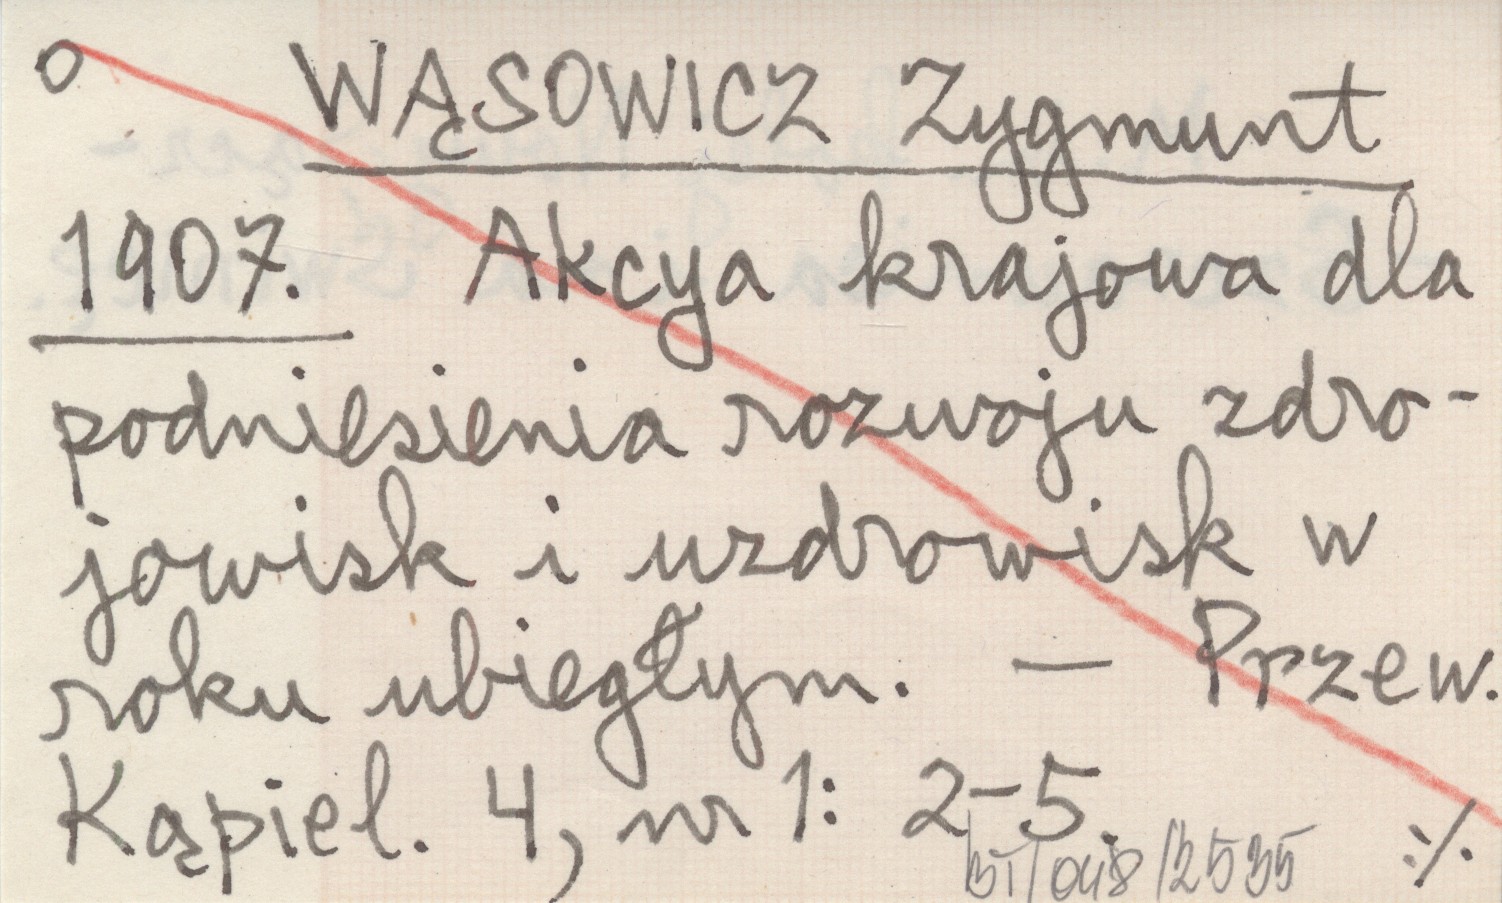 o WĄSOWICZ Zygmunt
1907. Akcya krajowa dla
podniesienia rozwoju zdro-
jowisk i uzdrowisk w
roku ubiegłym. — Przew.
Kąpiel. 4, nr 1: 2-5.
BI/048/2535 ./.